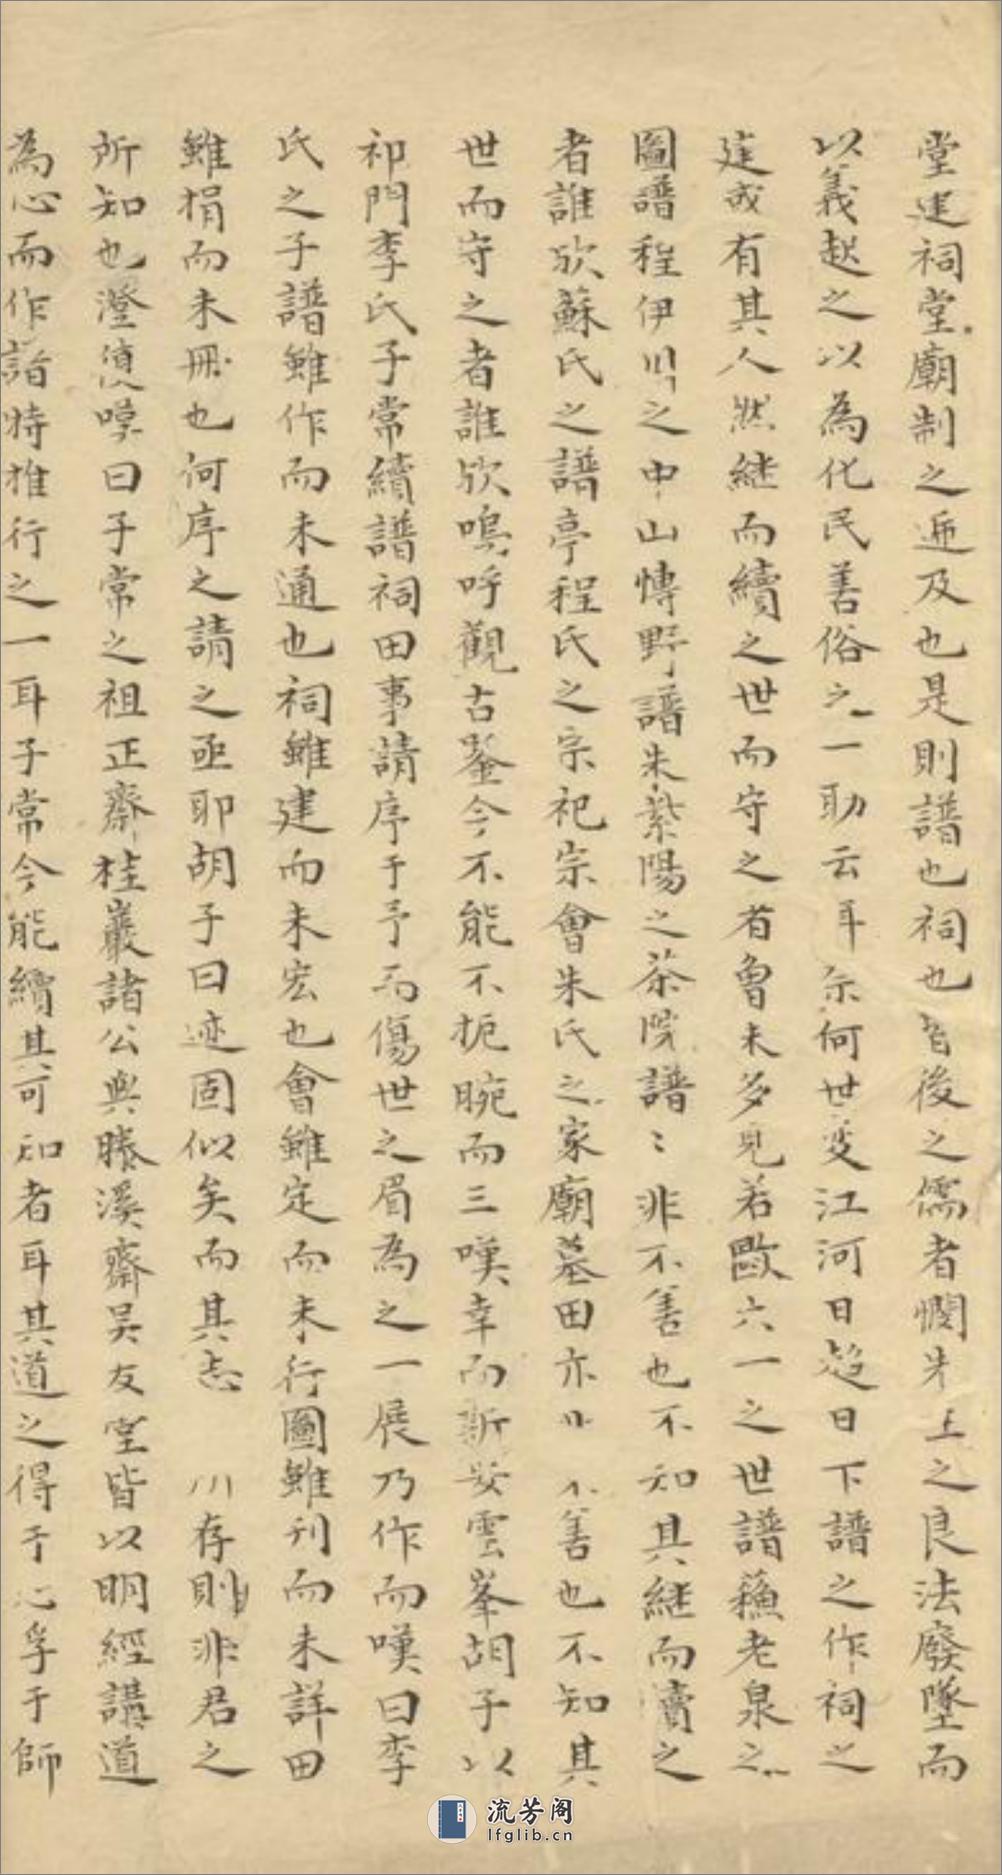 堂建祠堂廟制之遍及也是則譜也祠也皆後之儒者憫先王之良法廢墜而
以義起之以為化民善俗之一助云耳柰何世变江河日趋日下譜之作祠之
建或有其人然継而續之世而守之者曾未多見若歐六一之世譜蘓老泉之
圖譜程伊川之中山博野譜朱紫陽之茶院譜譜非不善也不知其継而續之
者誰欤蘇氏之譜亭程氏之宗祀宗會朱氏之家廟墓田亦非不善也不知其
世而守之者誰欤嗚呼觀古鑒今不能不扼腕而三嘆幸而新安雲峯胡子以
祁門李氏子常續譜祠田事請序于予丙傷世之眉為之一展乃作而嘆曰李
氏之子譜雖作而未通也祠雖建而未宏也會雖定而未行圖雖刊而未詳田
雖捐而未冊也何序之請之亟耶胡子曰迹固似矣而其志 存則非君之
所知也澄僨嘆曰子常之祖正齋桂巖諸公與滕溪齋吴友堂皆以明經講道
為心而作譜特推行之一耳子常今能續其可知者耳其道之得于心孚于師
流芳阁
lfglib.cn